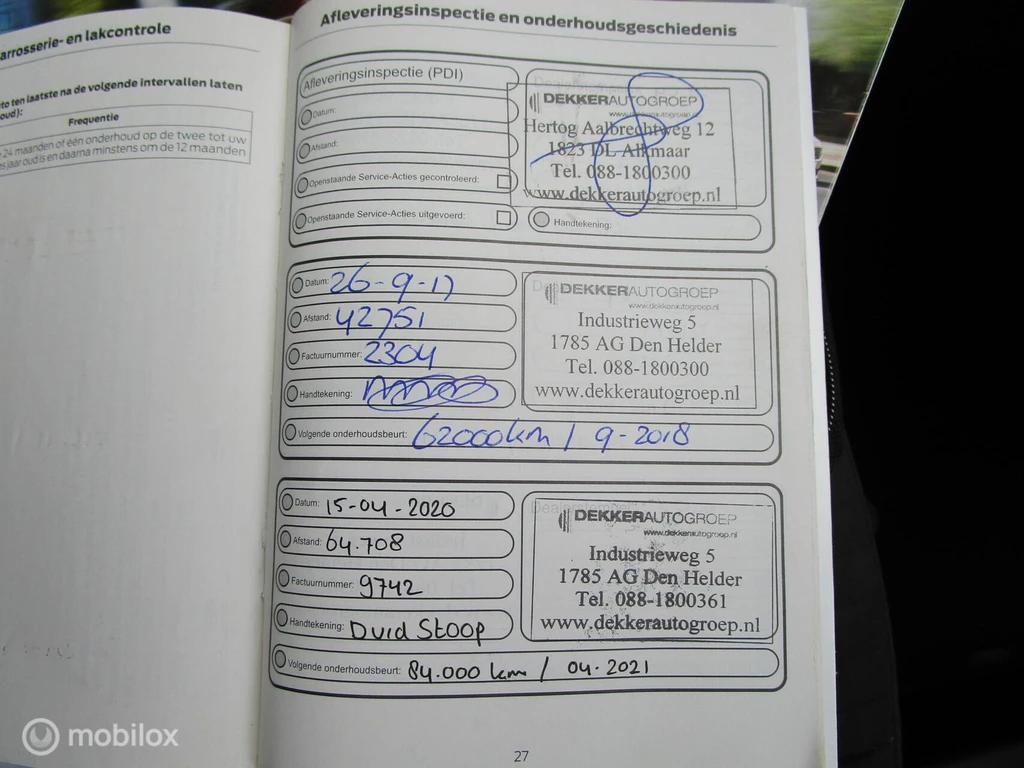 arrosserie- en lakcontrole
to ten laatste na de volgende intervallen laten
oud):
Frequentie
24 maanden of één onderhoud op de twee tot uw
es jaar oud is en daarna minstens om de 12 maanden
Afleveringsinspectie en onderhoudsgeschiedenis
Afleveringsinspectie (PDI)
Datum:
Afstand:
Openstaande Service-Acties gecontroleerd:
Openstaande Service-Acties uitgevoerd:
DEKKERAUTOGROEP
www.dekkerautogroep.nl
Hertog Aalbrechtweg 12
1823 DL Alkmaar
Tel. 088-1800300
www.dekkerautogroep.nl
Handtekening:
Datum: 26-9-17
Afstand: 42751
Factuurnummer: 2304
Handtekening:
Volgende onderhoudsbeurt: 62000km / 9-2018
DEKKERAUTOGROEP
www.dekkerautogroep.nl
Industrieweg 5
1785 AG Den Helder
Tel. 088-1800300
www.dekkerautogroep.nl
Datum: 15-04-2020
Afstand: 64.708
Factuurnummer: 9742
Handtekening: Dvid Stoop
Volgende onderhoudsbeurt: 84.000 km / 04-2021
DEKKERAUTOGROEP
www.dekkerautogroep.nl
Industrieweg 5
1785 AG Den Helder
Tel. 088-1800361
www.dekkerautogroep.nl
27
mobilox